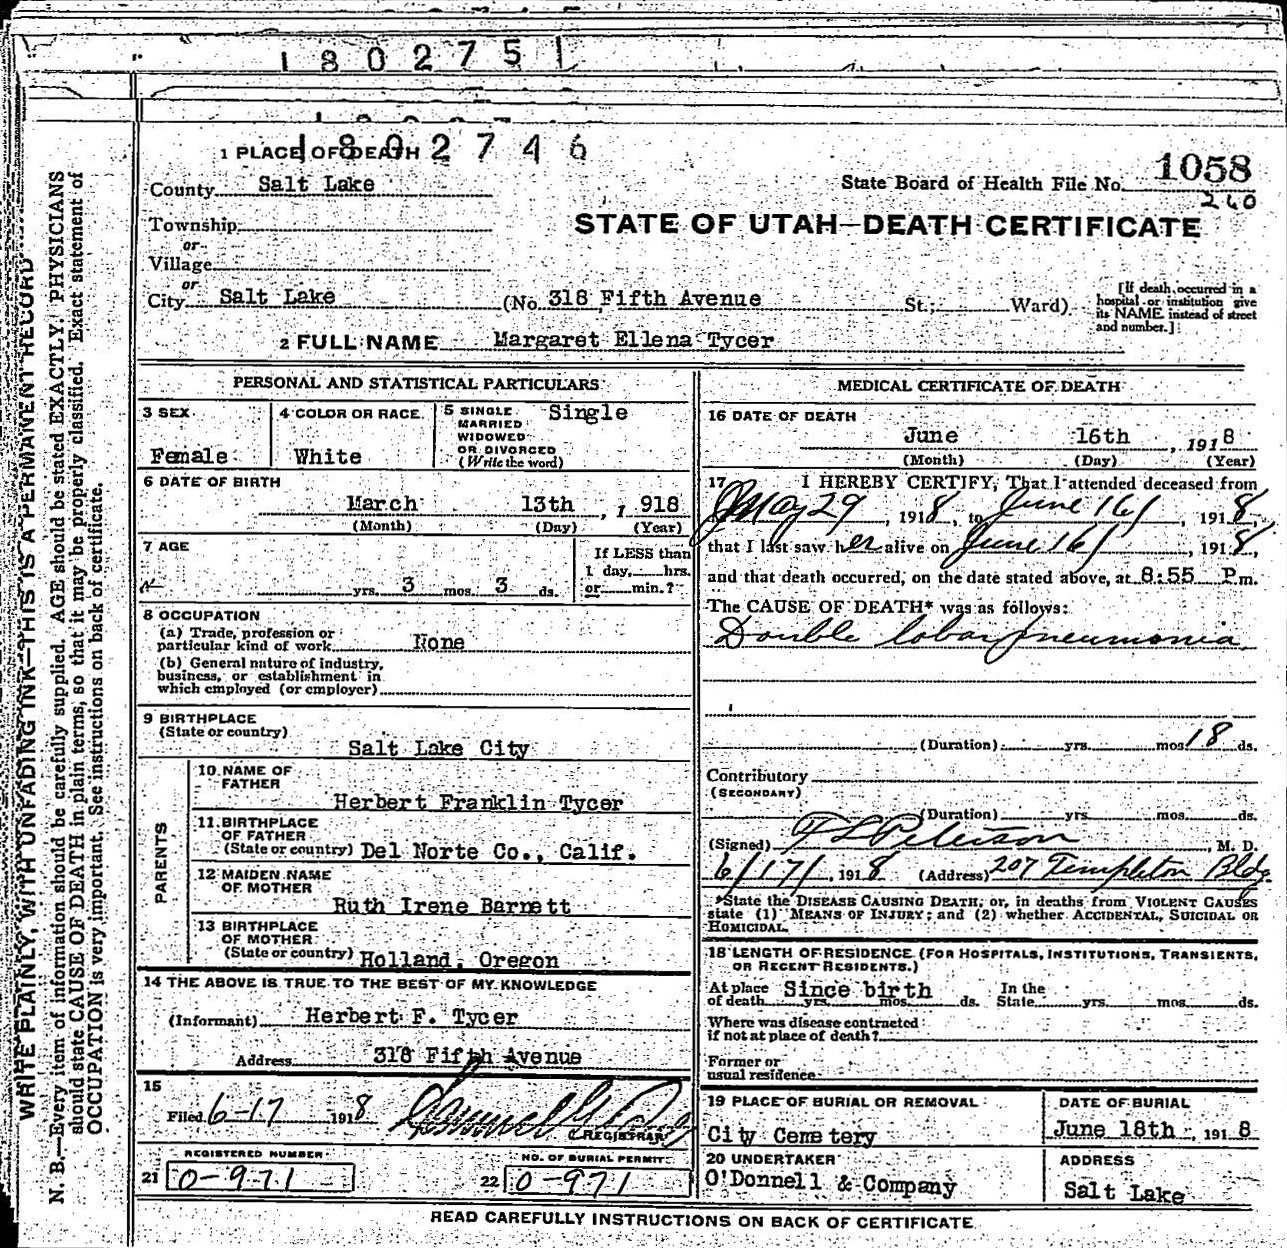 180275
1802746
1 PLACE OF DEATH
County Salt Lake
State Board of Health File No. 1058
260
Township
or
Village
or
STATE OF UTAH—DEATH CERTIFICATE
City Salt Lake (No. 318 Fifth Avenue St.; Ward)
[If death occurred in a
hospital or institution give
its NAME instead of street
and number.]
2 FULL NAME Margaret Ellena Tycer
PERSONAL AND STATISTICAL PARTICULARS
3 SEX
Female
4 COLOR OR RACE
White
5 SINGLE
MARRIED
WIDOWED
OR DIVORCED
(Write the word)
Single
6 DATE OF BIRTH
March 13th, 1 918
(Month) (Day) (Year)
7 AGE
yrs. 3 mos. 3 ds.
If LESS than
1 day, hrs.
or min.?
8 OCCUPATION
(a) Trade, profession or
particular kind of work None
(b) General nature of industry,
business, or establishment in
which employed (or employer)
9 BIRTHPLACE
(State or country)
Salt Lake City
PARENTS
10 NAME OF
FATHER
Herbert Franklin Tycer
11 BIRTHPLACE
OF FATHER
(State or country) Del Norte Co., Calif.
12 MAIDEN NAME
OF MOTHER
Ruth Irene Barnett
13 BIRTHPLACE
OF MOTHER
(State or country) Holland, Oregon
14 THE ABOVE IS TRUE TO THE BEST OF MY KNOWLEDGE
(Informant) Herbert F. Tycer
Address 318 Fifth Avenue
15
Filed 6-17 1918
REGISTRAR
REGISTERED NUMBER
21 0-971
NO. OF BURIAL PERMIT
22 0-971
MEDICAL CERTIFICATE OF DEATH
16 DATE OF DEATH
June 16th, 1918
(Month) (Day) (Year)
17 I HEREBY CERTIFY, That I attended deceased from
May 29, 1918, to June 16, 1918,
that I last saw her alive on June 16, 1918,
and that death occurred, on the date stated above, at 8:55 P.m.
The CAUSE OF DEATH* was as follows:
Double lobar pneumonia
(Duration) yrs. mos. 18 ds.
Contributory
(SECONDARY)
(Duration) yrs. mos. ds.
(Signed) Peterson, M. D.
6/17/, 1918 (Address) 207 Templeton Bldg.
*State the DISEASE CAUSING DEATH, or, in deaths from VIOLENT CAUSES
state (1) MEANS OF INJURY; and (2) whether ACCIDENTAL, SUICIDAL OR
HOMICIDAL.
18 LENGTH OF RESIDENCE (FOR HOSPITALS, INSTITUTIONS, TRANSIENTS,
OR RECENT RESIDENTS.)
At place
of death Since birth yrs. mos. ds.
In the
State yrs. mos. ds.
Where was disease contracted
if not at place of death?
Former or
usual residence
19 PLACE OF BURIAL OR REMOVAL
City Cemetery
DATE OF BURIAL
June 18th, 1918
20 UNDERTAKER
O'Donnell & Company
ADDRESS
Salt Lake
READ CAREFULLY INSTRUCTIONS ON BACK OF CERTIFICATE
WRITE PLAINLY, WITH UNFADING INK—THIS IS A PERMANENT RECORD
N. B.—Every item of information should be carefully supplied. AGE should be stated EXACTLY. PHYSICIANS
should state CAUSE OF DEATH in plain terms, so that it may be properly classified. Exact statement of
OCCUPATION is very important. See instructions on back of certificate.